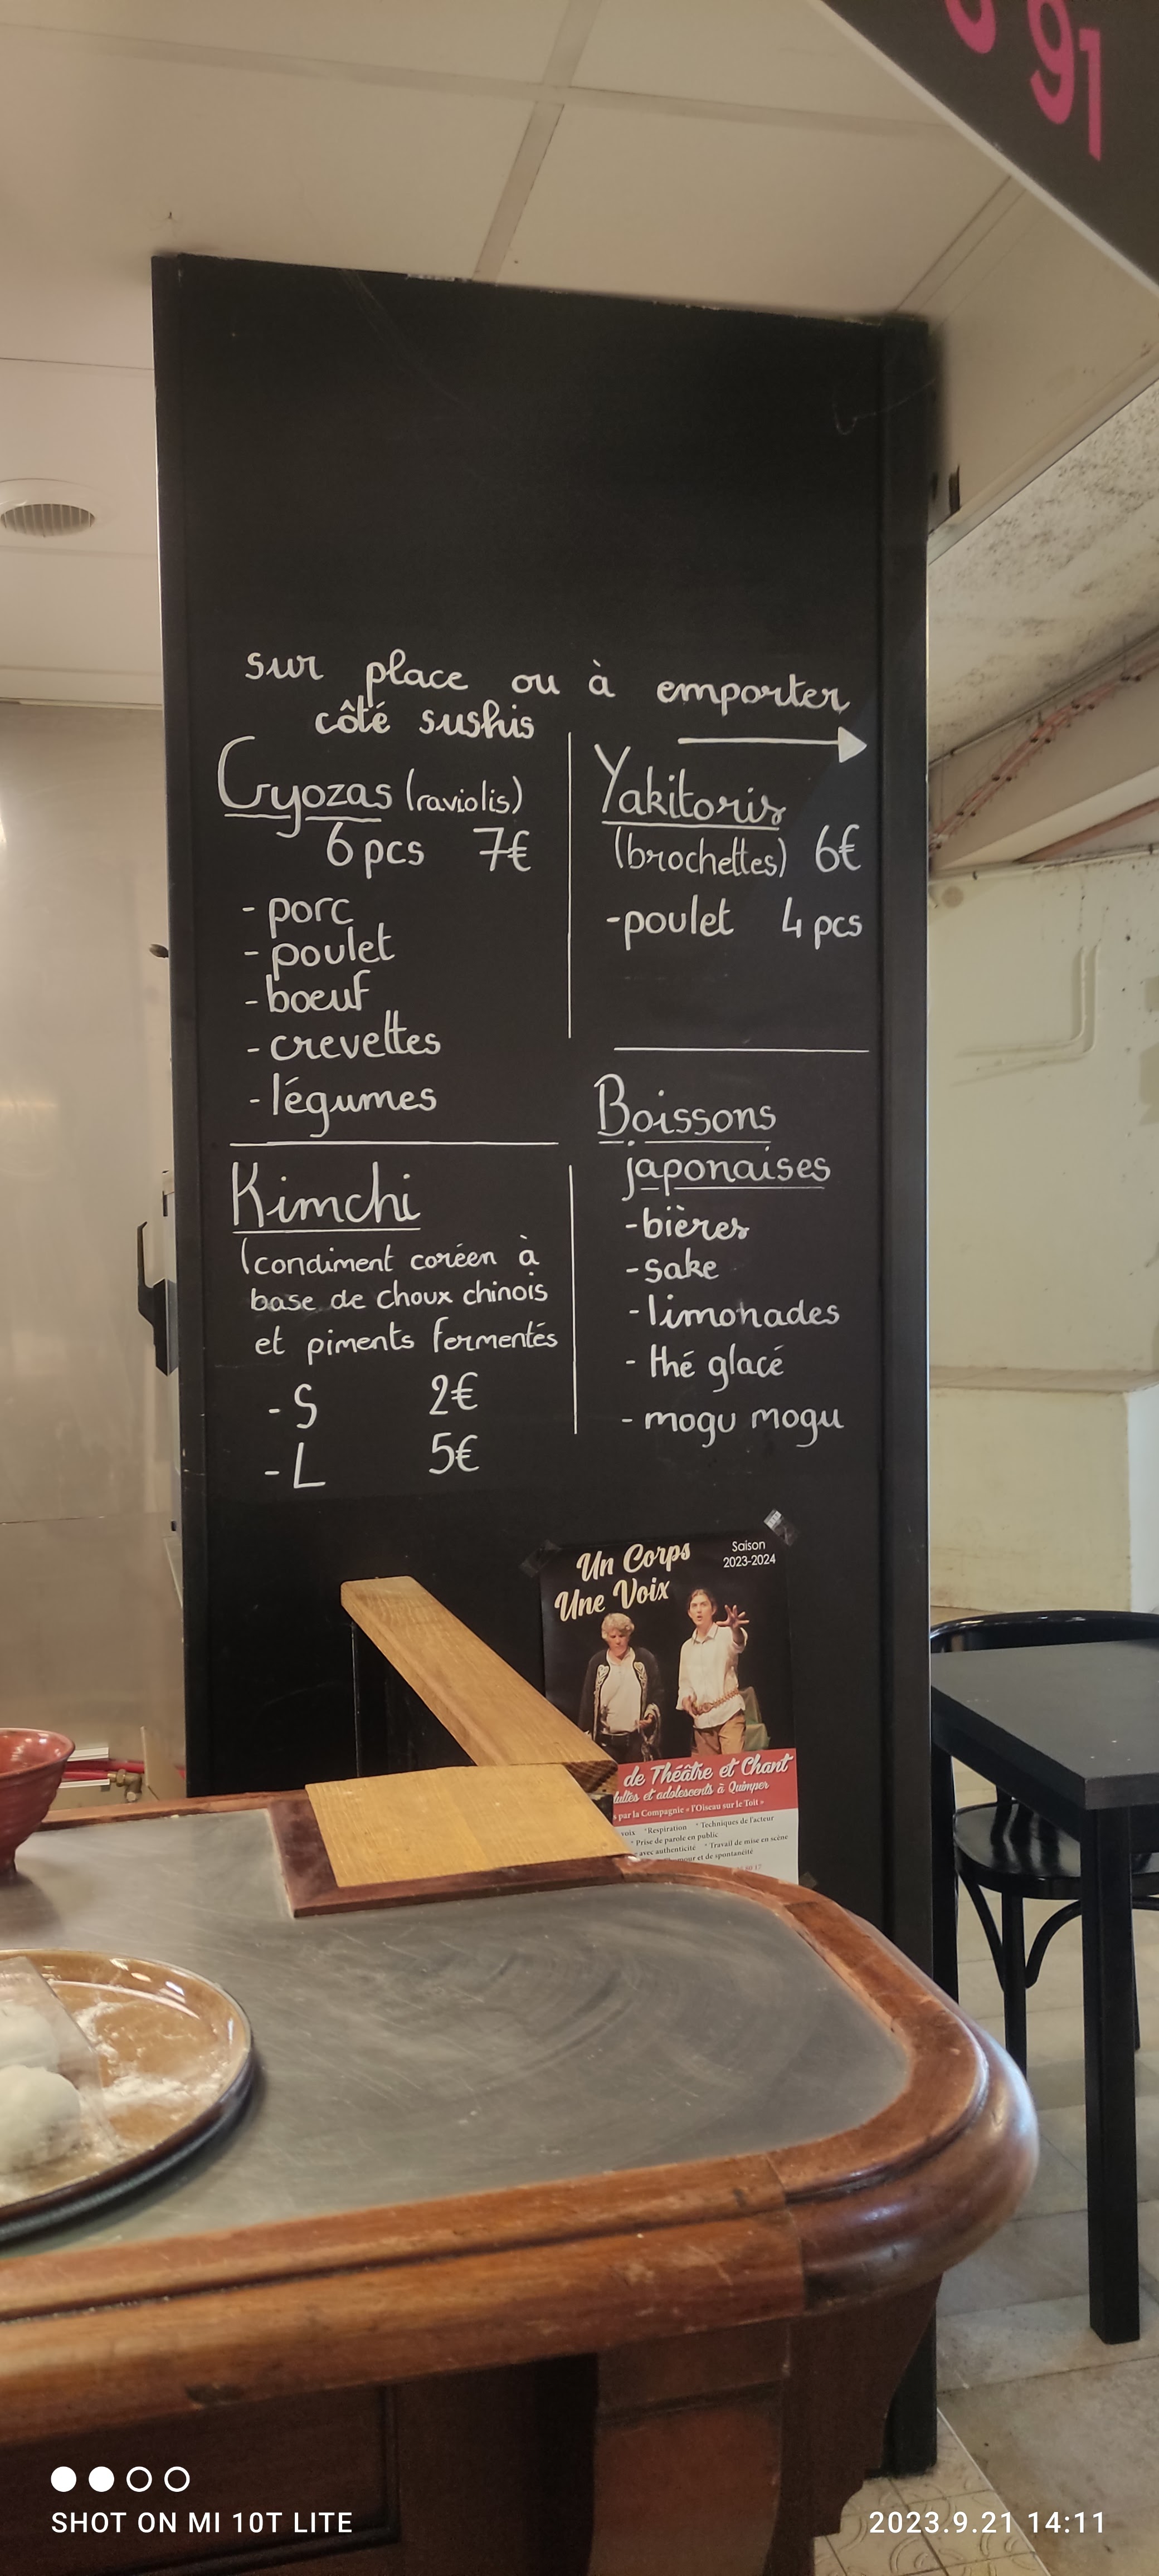 91
sur place ou à emporter
côté sushis
Gyozas (raviolis)
6 pcs 7€
- porc
- poulet
- boeuf
- crevettes
- légumes
Yakitoris
(brochettes) 6€
- poulet 4 pcs
Kimchi
(condiment coréen à
base de choux chinois
et piments fermentés
- S 2€
- L 5€
Boissons
japonaises
- bières
- sake
- limonades
- thé glacé
- mogu mogu
Un Corps
Une Voix
Saison
2023-2024
de Théâtre et Chant
et adolescents à Quimper
par la Compagnie « l'Oiseau sur le Toit »
voix *Respiration *Techniques de l'acteur
*Prise de parole en public
avec authenticité *Travail de mise en scène
et de spontanéité
SHOT ON MI 10T LITE
2023.9.21 14:11